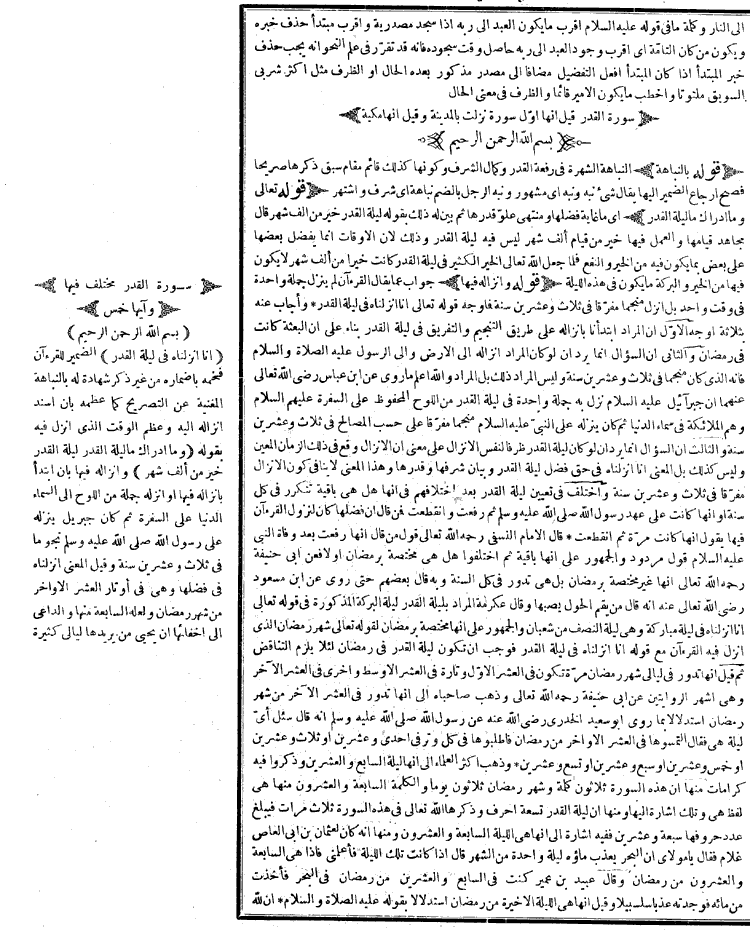 الى النار و كلمة مافى قوله عليه السلام اقرب مايكون العبد الى ربه اذا سجد مصدرية و اقرب مبتدأ حذف خبره
ويكون من كان التامة اى اقرب وجود العبد الى ربه حاصل وقت سجوده فانه قد تقرر فى علم النحو انه يجب حذف
خبر المبتدأ اذا كان المبتدأ افعل التفضيل مضافا الى مصدر مذكور بعده الحال او الظرف مثل اكثر شربى
السويق ملتوتا و اخطب مايكون الامير قائما و الظرف فى معنى الحال
سورة القدر قيل انها اول سورة نزلت بالمدينة وقيل انها مكية
بسم الله الرحمن الرحيم
قوله بالنباهة النباهة الشهرة فى رفعة القدر و كمال الشرف و كونها كذلك قائم مقام سبق ذكرها صريحا
فصح ارجاع الضمير اليها يقال شئ نبه ونبه اى مشهور و نبه الرجل بالضم نباهة اى شرف و اشتهر قوله تعالى
و ما ادراك ما ليلة القدر اى ما غاية فضلها و منتهى علو قدرها ثم بين له ذلك بقوله ليلة القدر خير من الف شهر قال
مجاهد قيامها و العمل فيها خير من قيام ألف شهر ليس فيه ليلة القدر وذلك لان الاوقات انما يفضل بعضها
على بعض بما يكون فيه من الخير و النفع فلما جعل الله تعالى الخير الكثير فى ليلة القدر كانت خيرا من ألف شهر لا يكون
فيها من الخير و البركة مايكون فى هذه الليلة قوله و انزاله فيها جواب عما يقال القرءآن لم ينزل جملة واحدة
فى وقت واحد بل انزل منجما مفرقا فى ثلاث وعشرين سنة فاوجه قوله تعالى انا انزلناه فى ليلة القدر * وأجاب عنه
بثلاثة اوجه الاول ان المراد ابتدأنا بانزاله على طريق التنجيم و التفريق فى ليلة القدر بناء على ان البعثة كانت
فى رمضان و الثانى ان السؤال انما يرد ان لو كان المراد انزاله الى الارض و الى الرسول عليه الصلاة و السلام
فانه الذى كان منجما فى ثلاث و عشرين سنة و ليس المراد ذلك بل المراد و الله اعلم ماروى عن ابن عباس رضى الله تعالى
عنهما ان جبرآئيل عليه السلام نزل به جملة واحدة فى ليلة القدر من اللوح المحفوظ على السفرة عليهم السلام
وهم الملائكة فى سماء الدنيا ثم كان ينزله على النبى عليه السلام منجما مفرقا على حسب المصالح فى ثلاث وعشرين
سنة و الثالث ان السؤال انما يرد ان لو كان ليلة القدر ظرفا لنفس الانزال على معنى ان الانزال وقع فى ذلك الزمان المعين
وليس كذلك بل المعنى انا انزلناه فى حق فضل ليلة القدر و بيان شرفها و قدرها و هذا المعنى لا ينافى كون الانزال
مفرقا فى ثلاث و عشرين سنة و اختلف فى تعيين ليلة القدر بعد اختلافهم فى انها هل هى باقية تتكرر فى كل
سنة او انها كانت على عهد رسول الله صلى الله عليه وسلم ثم رفعت و انقطعت فمن قال ان فضلها كان لنزول القرءآن
فيها يقول انها كانت مرة ثم انقطعت * قال الامام النسفى رحمه الله تعالى قول من قال انها رفعت بعد وفاة النبى
عليه السلام قول مردود و الجمهور على انها باقية ثم اختلفوا هل هى مختصة برمضان او لا فعن ابى حنيفة
رحمه الله تعالى انها غير مختصة برمضان بل هى تدور فى كل السنة و به قال بعضهم حتى روى عن ابن مسعود
رضى الله تعالى عنه انه قال من يقم الحول يصبها وقال عكرمة المراد بليلة القدر ليلة البركة المذكورة فى قوله تعالى
انا انزلناه فى ليلة مباركة و هى ليلة النصف من شعبان و الجمهور على انها مختصة برمضان لقوله تعالى شهر رمضان الذى
انزل فيه القرءآن مع قوله انا انزلناه فى ليلة القدر فوجب ان تكون ليلة القدر فى رمضان لئلا يلزم التناقض
ثم قيل انها تدور فى ليالى شهر رمضان مرة تكون فى العشر الاول و تارة فى العشر الاوسط و اخرى فى العشر الآخر
وهى اشهر الروايتين عن ابى حنيفة رحمه الله تعالى وذهب صاحباه الى انها تدور فى العشر الآخر من شهر
رمضان استدلالا بما روى ابو سعيد الخدرى رضى الله عنه عن رسول الله صلى الله عليه وسلم انه قال سئل أى
ليلة هى فقال التمسوها فى العشر الاواخر من رمضان فاطلبوها فى كل وتر فى احدى و عشرين او ثلاث و عشرين
او خمس وعشرين او سبع و عشرين او تسع و عشرين * وذهب اكثر العلماء الى انها ليلة السابع و العشرين و ذكروا فيه
كرامات منها ان هذه السورة ثلاثون كلمة و شهر رمضان ثلاثون يوما و الكلمة السابعة و العشرون منها هى
لفظ هى و تلك اشارة اليها و منها ان ليلة القدر تسعة احرف و ذكرها الله تعالى فى هذه السورة ثلاث مرات فيبلغ
عدد حروفها سبعة و عشرين ففيه اشارة الى انها هى الليلة السابعة و العشرون و منها انه كان لعثمان بن ابى العاص
غلام فقال يا مولاى ان البحر يعذب ماؤه ليلة واحدة من الشهر قال اذا كانت تلك الليلة فأعلمنى فاذا هى السابعة
و العشرون من رمضان وقال عبيد بن عمير كنت فى السابع و العشرين من رمضان فى البحر فأخذت
من مائه فوجدته عذبا سلسبيلا و قيل انها هى الليلة الاخيرة من رمضان استدلالا بقوله عليه الصلاة و السلام * ان لله
سورة القدر مختلف فيها
و آيها خمس
( بسم الله الرحمن الرحيم )
( انا انزلناه فى ليلة القدر ) الضمير للقرءآن
فخمه باضماره من غير ذكر شهادة له بالنباهة
المغنية عن التصريح كما عظمه بان اسند
انزاله اليه و عظم الوقت الذى انزل فيه
بقوله ( و ما ادراك ما ليلة القدر ليلة القدر
خير من ألف شهر ) و انزاله فيها بان ابتدأ
بانزاله فيها او انزله جملة من اللوح الى السماء
الدنيا على السفرة ثم كان جبريل ينزله
على رسول الله صلى الله عليه وسلم نجوما
فى ثلاث و عشرين سنة و قيل المعنى انزلناه
فى فضلها و هى فى أوتار العشر الاواخر
من شهر رمضان و لعله السابعة منها و الداعى
الى اخفائها ان يحيى من يريدها ليالى كثيرة